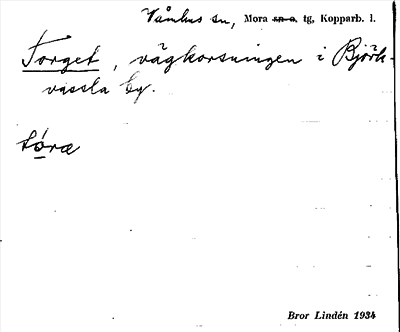 Våmhus sn, Mora sp o. tg, Kopparb. l.
Torget, vägkorsningen i Björk-
vassla by.
tóræ
Bror Lindén 1934